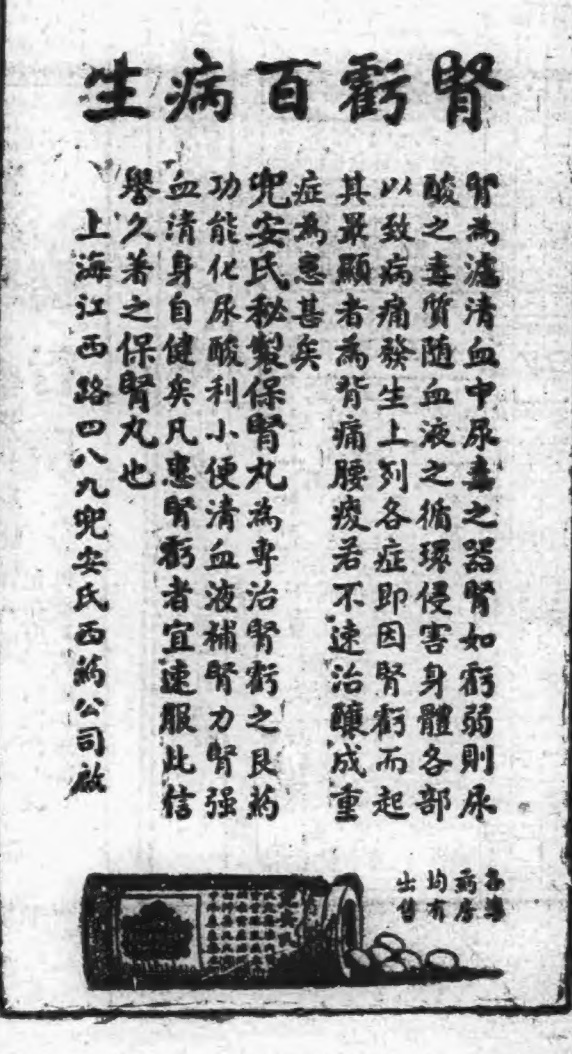 腎虧百病生
腎為濾清血中尿毒之器腎如虧弱則尿
酸之毒質随血液之循環侵害身體各部
以致病痛發生上列各症即因腎虧而起
其最顯者為背痛腰痠若不速治釀成重
症為患甚矣
兜安氏秘製保腎丸為專治腎虧之良药
功能化尿酸利小便清血液補腎力腎强
血清身自健矣凡患腎虧者宜速服此信
譽久著之保腎丸也
上海江西路四八九兜安氏西药公司啟
各埠
药房
均有
出售